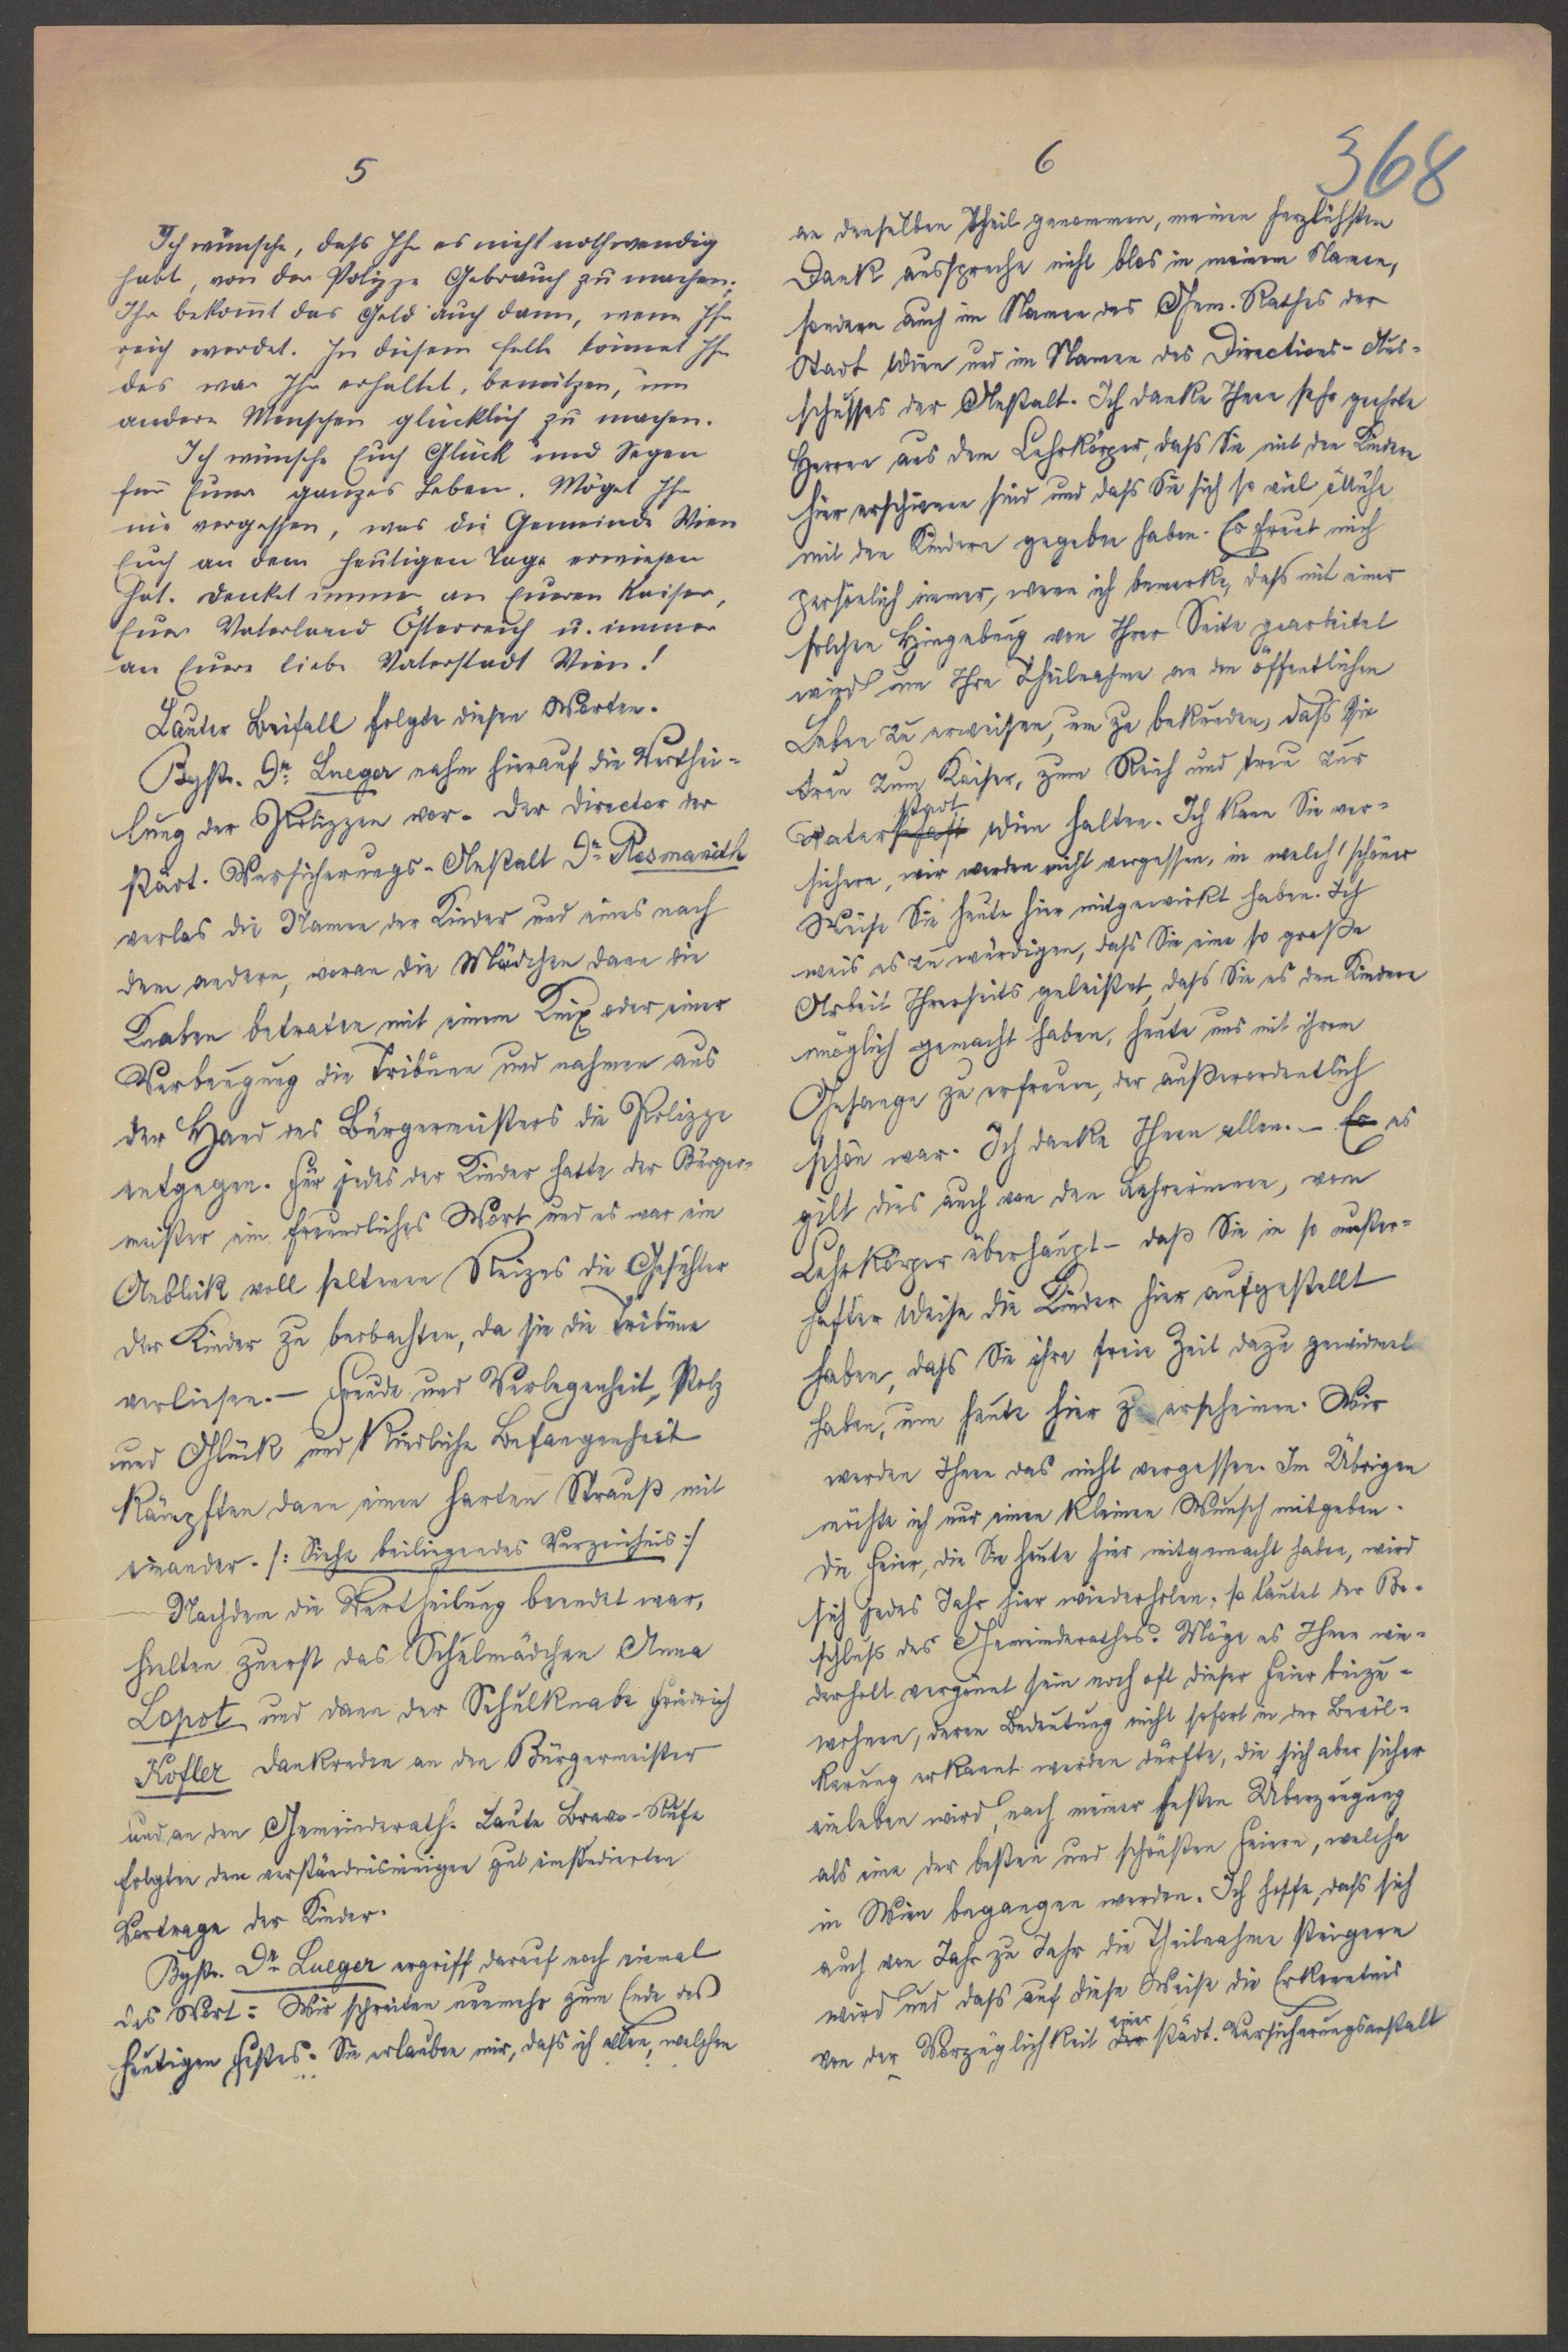 5
Ich wünsche, dass Ihr es nicht nothwendig
habt, von der Polizze Gebrauch zu machen;
Ihr bekommt das Geld auch dann, wenn Ihr
reich werdet. In diesem Falle könnet Ihr
das was Ihr erhaltet, benützen, um
andere Menschen glücklich zu machen.
Ich wünsche Euch Glück und Segen
für Euer ganzes Leben. Möget Ihr
nie vergessen, was die Gemeinde Wien
Euch an dem heutigen Tage erwiesen
hat. Denket immer an Eueren Kaiser,
Euer Vaterland Österreich u. immer
an Euere liebe Vaterstadt Wien!
Lauter Beifall folgte diesen Worten.
Bgst. Dr. Lueger nahm hierauf die Verthei-
lung der Polizzen vor. Der Director der
städt. Versicherungs-Anstalt Dr. Rosmanith
verlas die Namen der Kinder und eines nach
dem andern, voran die Mädchen dann die
Knaben betraten mit einem Knix oder einer
Verbeugung die Tribüne und nahmen aus
der Hand des Bürgermeisters die Polizze
entgegen. Für jedes der Kinder hatte der Bürger-
meister ein freundliches Wort und es war ein
Anblick voll seltenen Reizes die Gesichter
der Kinder zu beobachten, da sie die Tribüne
verliesen. – Freude und Verlegenheit, Stolz
und Glück und kindliche Befangenheit
kämpften dann einen harten Strauß mit
einander. /: Siehe beiliegendes Verzeichnis :/
Nachdem die Vertheilung beendet war,
hielten zuerst das Schulmädchen Anna
Lopot und dann der Schulknabe Friedrich
Kofler Dankreden an den Bürgermeister
und an den Gemeinderath. Laute Bravo-Rufe
folgten dem verständnisinnigen gut einstudierten
Vortrage der Kinder.
Bgst. Dr. Lueger ergriff darauf noch einmal
das Wort: Wir schreiten nunmehr zum Ende des
heutigen Festes. Sie erlauben mir, dass ich allen, welchen
6
368
an denselben Theil genommen, meinen herzlichsten
Dank ausspreche nicht blos in meinem Namen,
sondern auch im Namen des Gem. Rathes der
Stadt Wien und im Namen des Directions-Aus-
schusses der Anstalt. Ich danke Ihnen sehr geehrte
Herren aus dem Lehrkörper, dass Sie mit den Kindern
hier erschienen sind und dass Sie sich so viel Mühe
mit den Kindern gegeben haben. Es freut mich
persönlich immer, wenn ich bemerke, dass mit einer
solchen Hingebung von Ihrer Seite gearbeitet
wird um Ihre Theilnahme an dem öffentlichen
Leben zu erweisen, um zu bekunden, dass Sie
treu zum Kaiser, zum Reich und treu zur
Vaterstadt Wien halten. Ich kann Sie ver-
sichern, wir werden nicht vergessen, in welch' schöner
Weise Sie heute hier mitgewirkt haben. Ich
weis es zu würdigen, dass Sie eine so große
Arbeit Ihrerseits geleistet, dass Sie es den Kindern
möglich gemacht haben, heute uns mit ihrem
Gesange zu erfreuen, der außerordentlich
schön war. Ich danke Ihnen allen. – Es es
gilt dies auch von den Lehrerinnen, vom
Lehrkörper überhaupt – daß Sie in so muster-
hafter Weise die Kinder hier aufgestellt
haben, dass Sie ihre freie Zeit dazu gewidmet
haben, um heute hier zu erscheinen. Wir
werden Ihnen das nicht vergessen. Im Übrigen
möchte ich nur einen kleinen Wunsch mitgeben.
Die Feier, die Sie heute hier mitgemacht haben, wird
sich jedes Jahr hier wiederholen; so lautet der Be-
schluss des Gemeinderathes. Möge es Ihnen wie-
derholt vergönnt sein noch oft dieser Feier beizu-
wohnen, deren Bedeutung nicht sofort in der Bevöl-
kerung erkannt werden dürfte, die sich aber sicher
einleben wird, nach meiner festen Überzeugung
als eine der besten und schönsten Feiern, welche
in Wien begangen werden. Ich hoffe, dass sich
auch von Jahr zu Jahr die Theilnahme steigern
wird und dass auf diese Weise die Erkenntnis
von der Vorzüglichkeit der einer städt. Versicherungsanstalt